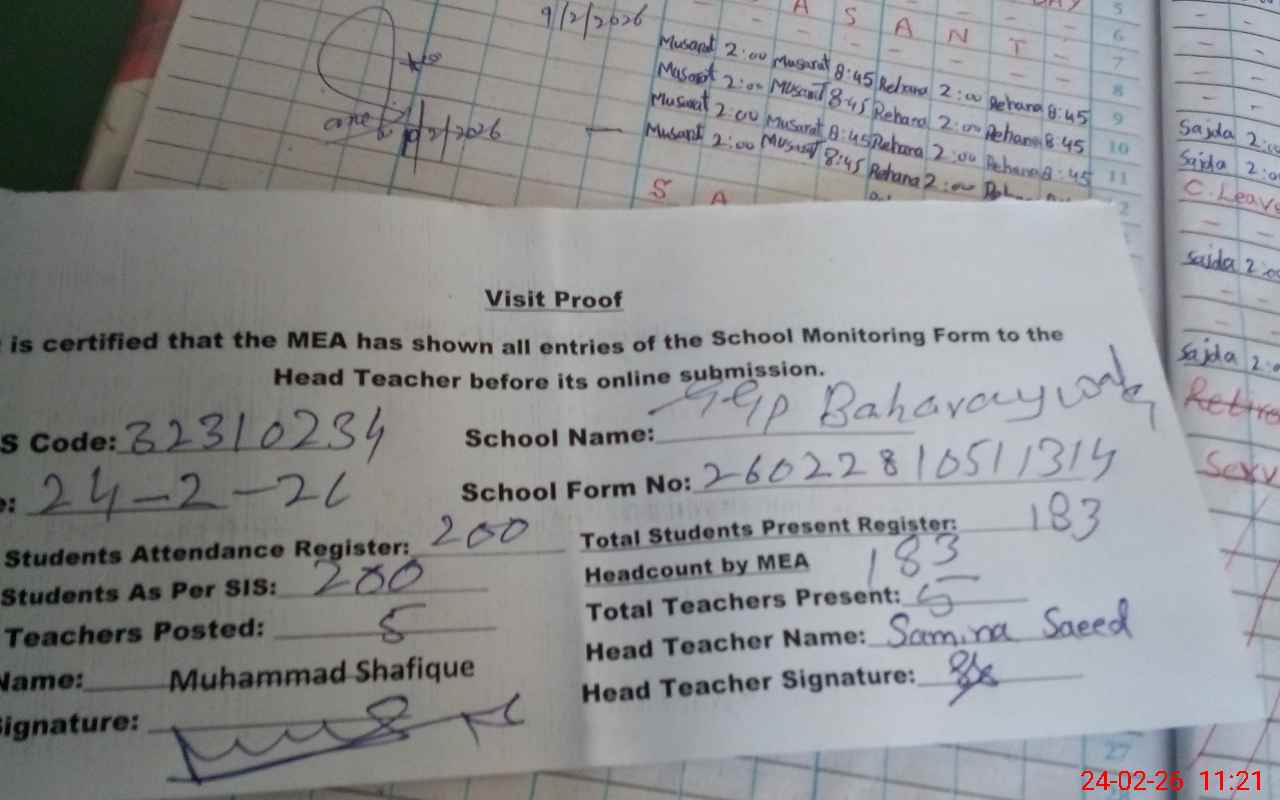 9/2/2026
A S A N T
5
6
7
8
9
10
11
Musarat 2:00 Musarat 8:45 Rehana 2:00 Rehana 8:45
Musarat 2:00 Musarat 8:45 Rehana 2:00 Rehana 8:45
Musarat 2:00 Musarat 8:45 Rehana 2:00 Rehana 8:45
Musarat 2:00 Musarat 8:45 Rehana 2:00
S A
Sajda 2:00
Sajda 2:00
C.Leave
Sajda 2:00
Sajda 2:
Visit Proof
is certified that the MEA has shown all entries of the School Monitoring Form to the
Head Teacher before its online submission.
S Code: 32310234 School Name: GGP
24-2-26 School Form No: 26022810511314
Students Attendance Register: 200 Total Students Present Register: 183
Students As Per SIS: 200 Headcount by MEA 183
Teachers Posted: 5 Total Teachers Present: 5
Name: Muhammad Shafique Head Teacher Name: Samina Saeed
Signature: Head Teacher Signature:
27
24-02-26 11:21